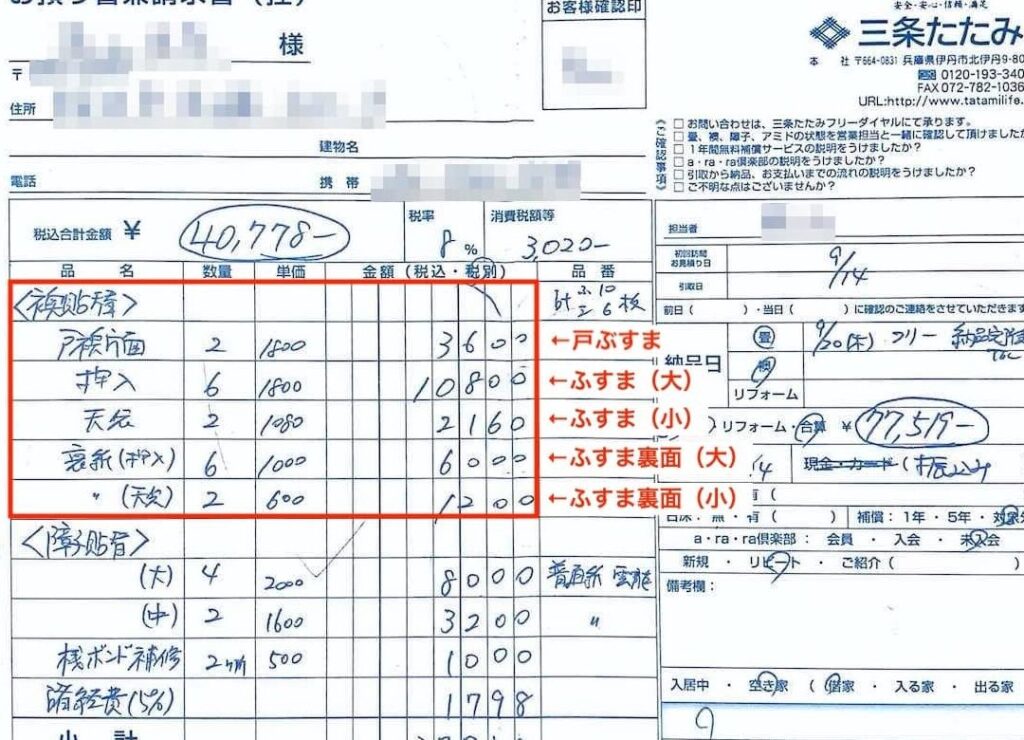 様
お客様確認印
安全・安心・信頼・満足
三条たたみ
本 社 〒664-0831 兵庫県伊丹市北伊丹9-80
0120-193-340
FAX 072-782-1036
URL:http://www.tatamilife.
〒
住所
建物名
電話
携 帯
《ご確認事項》
□お問い合わせは、三条たたみフリーダイヤルにて承ります。
□畳、襖、障子、アミドの状態を営業担当と一緒に確認して頂けましたか
□1年間無料補償サービスの説明をうけましたか？
□a・ra・ra倶楽部の説明をうけましたか？
□引取から納品、お支払いまでの流れの説明をうけましたか？
□ご不明な点はございませんか？
税込合計金額 ¥ 40,778-
税率 8%
消費税額等 3,020-
担当者
初回訪問お見積り日 9/14
引取日
前日( )・当日( )に確認のご連絡をさせていただきます
品 名 数量 単価 金額(税込・税別) 品 番
<襖貼替> 計 ふ10 6枚
戸襖片面 2 1800 3600 ←戸ぶすま
押入 6 1800 10800 ←ふすま（大）
天袋 2 1080 2160 ←ふすま（小）
裏新(押入) 6 1000 6000 ←ふすま裏面（大）
〃(天袋) 2 600 1200 ←ふすま裏面（小）
<障子貼替>
(大) 4 2000 8000 普通新 雲龍
(中) 2 1600 3200 〃
桟ボンド補修 2ヶ所 500 1000
諸経費(5%) 1798
小 計
納品日
畳 9/30(木) フリー
襖
リフォーム
リフォーム・合算 ¥77,519-
現金・カード (振込み
有(
無・有( ) 補償：1年・5年・対象
a・ra・ra倶楽部： 会員 ・ 入会 ・ 未入会
新規 ・ リピート ・ ご紹介( )
備考欄：
入居中 ・ 空き家 ( 借家 ・ 入る家 ・ 出る家